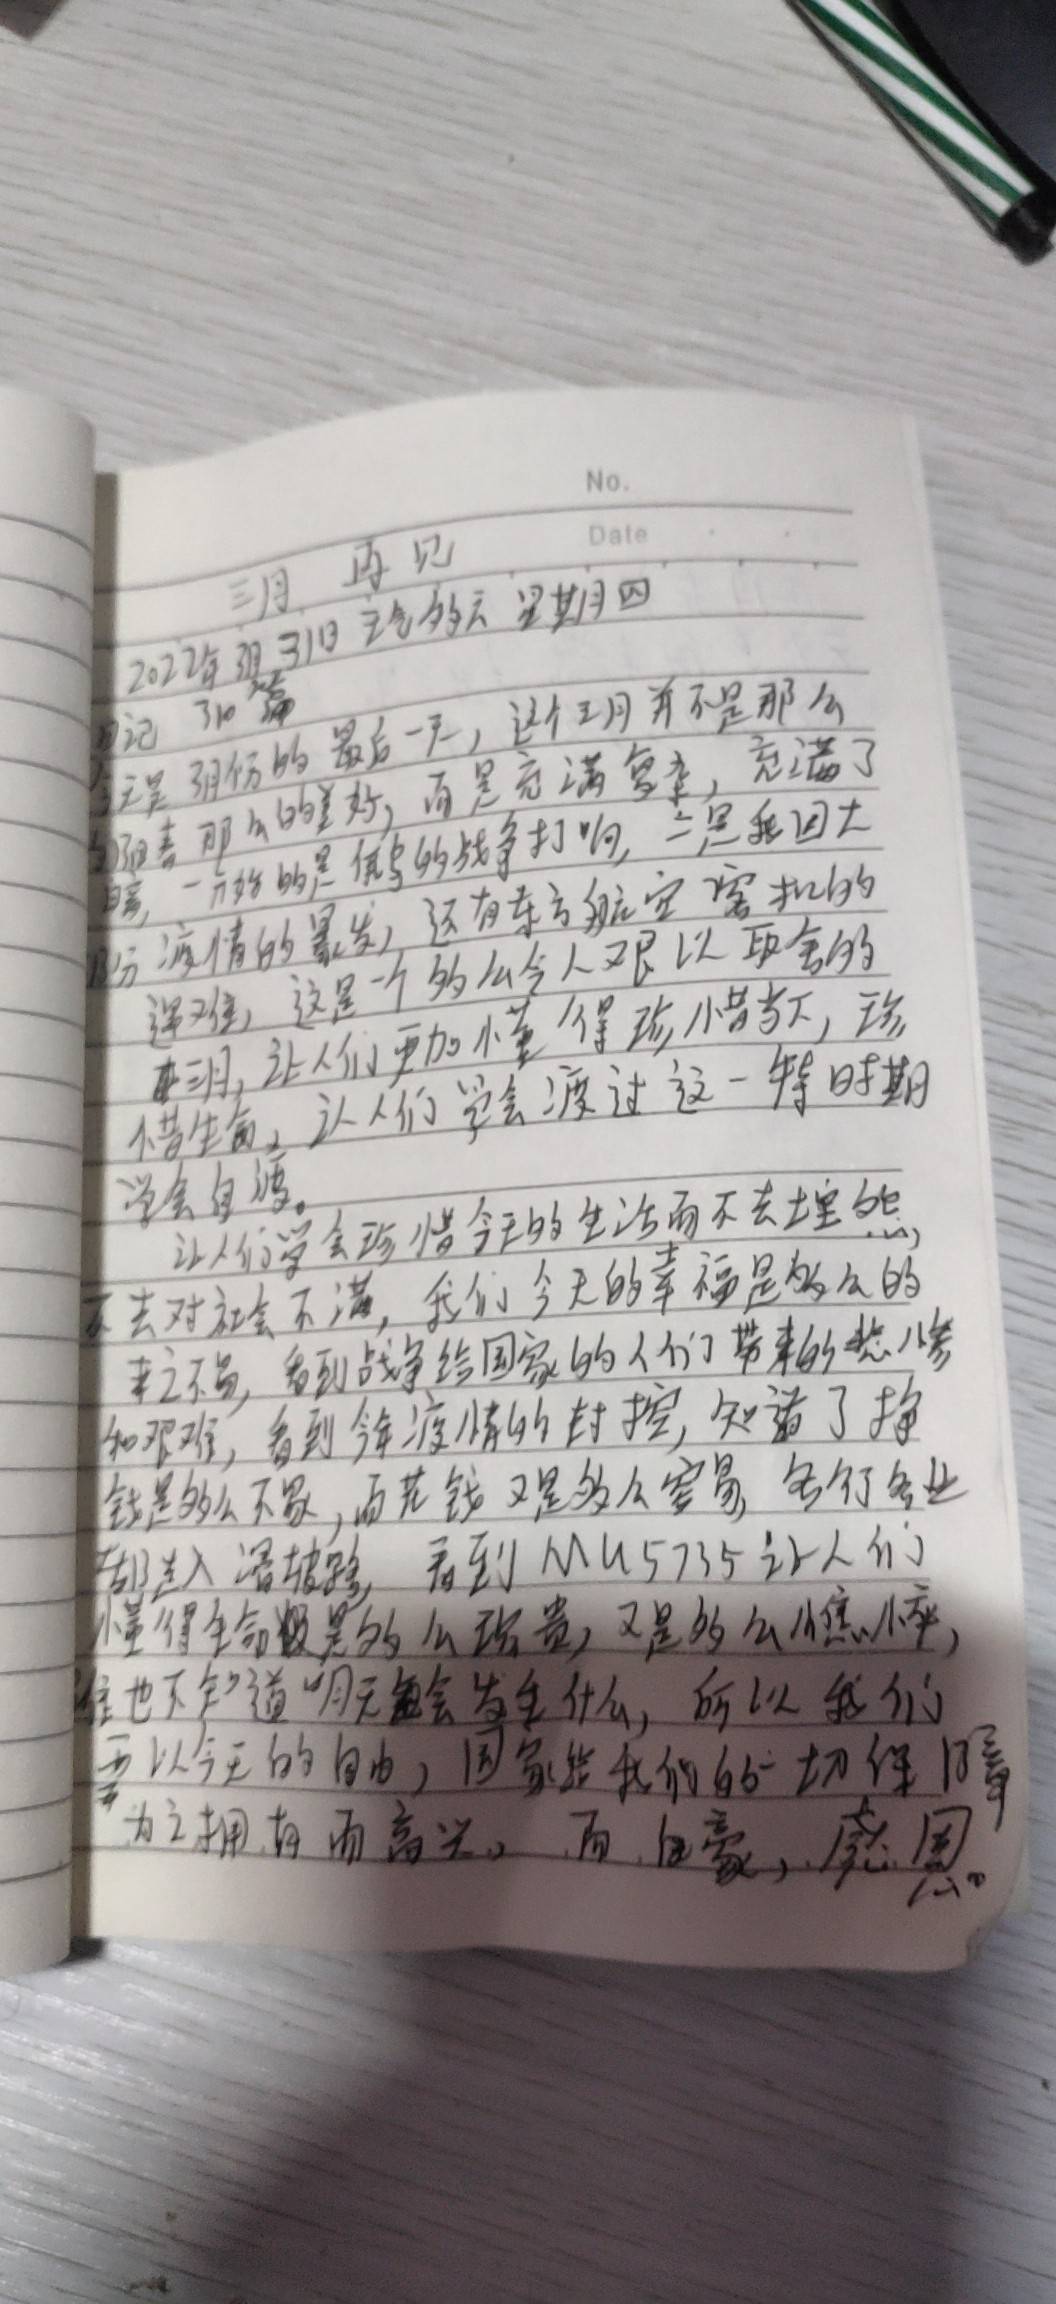 No.
Date
三月 再见
2022年3月31日 天气多云 星期四
日记 310篇
今天是3月份的最后一天，这个三月并不是那么
那么的美好，而是充满复杂，充满了
一开始的是俄乌的战争打响，二是我国大
疫情的暴发，还有东方航空客机的
遇难，这是一个多么令人难以取舍的
三月，让人们更加懂得珍惜当下，珍
惜生命，让人们学会渡过这一特时期
学会自渡。
让人们学会珍惜今天的生活而不去埋怨，
不去对社会不满，我们今天的幸福是多么的
来之不易，看到战争给国家的人们带来的悲惨
和艰难，看到今年疫情的封控，知道了挣
钱是多么不易，而花钱又是多么容易，各行各业
都进入滑坡路，看到MU5735让人们
懂得生命是多么珍贵，又是多么憔悴，
谁也不知道明天会发生什么，所以我们
要以今天的自由，国家给我们的一切保障
为之拥有而高兴，而自豪，感恩。